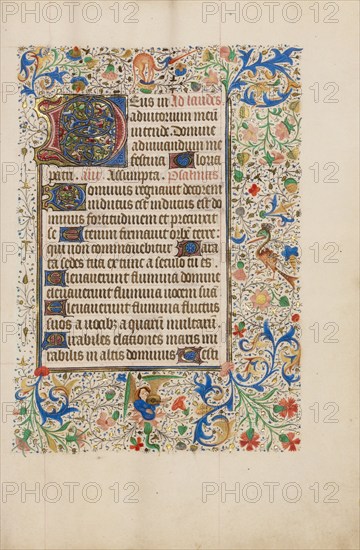 Deus in Ad laudes
adiutorium meu
intende. Domine
adiuuandum me
festina Gloria
patri. an̄. Assumpta. Psalmus.
Dominus regnauit decorem
indutus est indutus est do
minus fortitudinem et precinxit
se Etenim firmauit orbē terre:
qui non commouebitur Parata
sedes tua ex tunc a seculo tu es
Eleuauerunt flumina domine
eleuauerunt flumina uocem suā
Eleuauerunt flumina fluctus
suos a uocibz aquarū multarū.
Mirabiles elationes maris mi
rabilis in altis dominus Testi